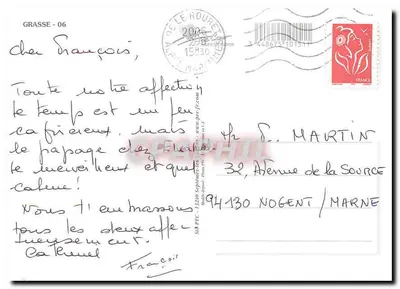 GRASSE - 06
cher François,
Toute notre affection
le temps est un peu
capricieux. mais
le paysage
le merveilleux et quel
calme!
Nous t'embrassons
tous les deux affec-
tueusement.
François
FRANCE
MARTIN
32, Avenue de la SOURCE
94130 NOGENT / MARNE